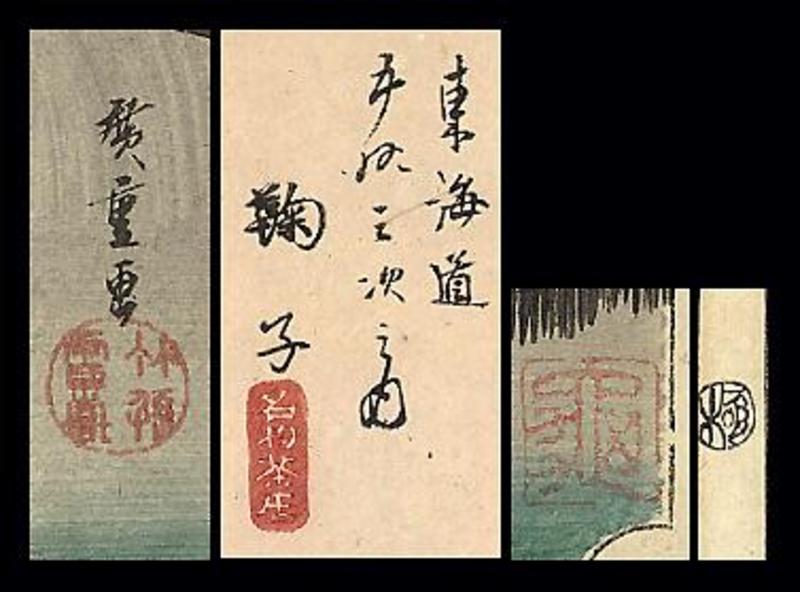 廣重画
東海道
五拾三次之内
鞠子
名物茶店
極